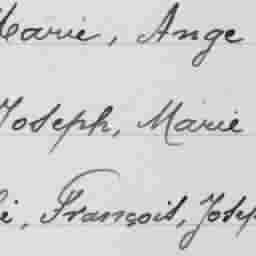 Marie, Ange
Joseph, Marie
François, Josep